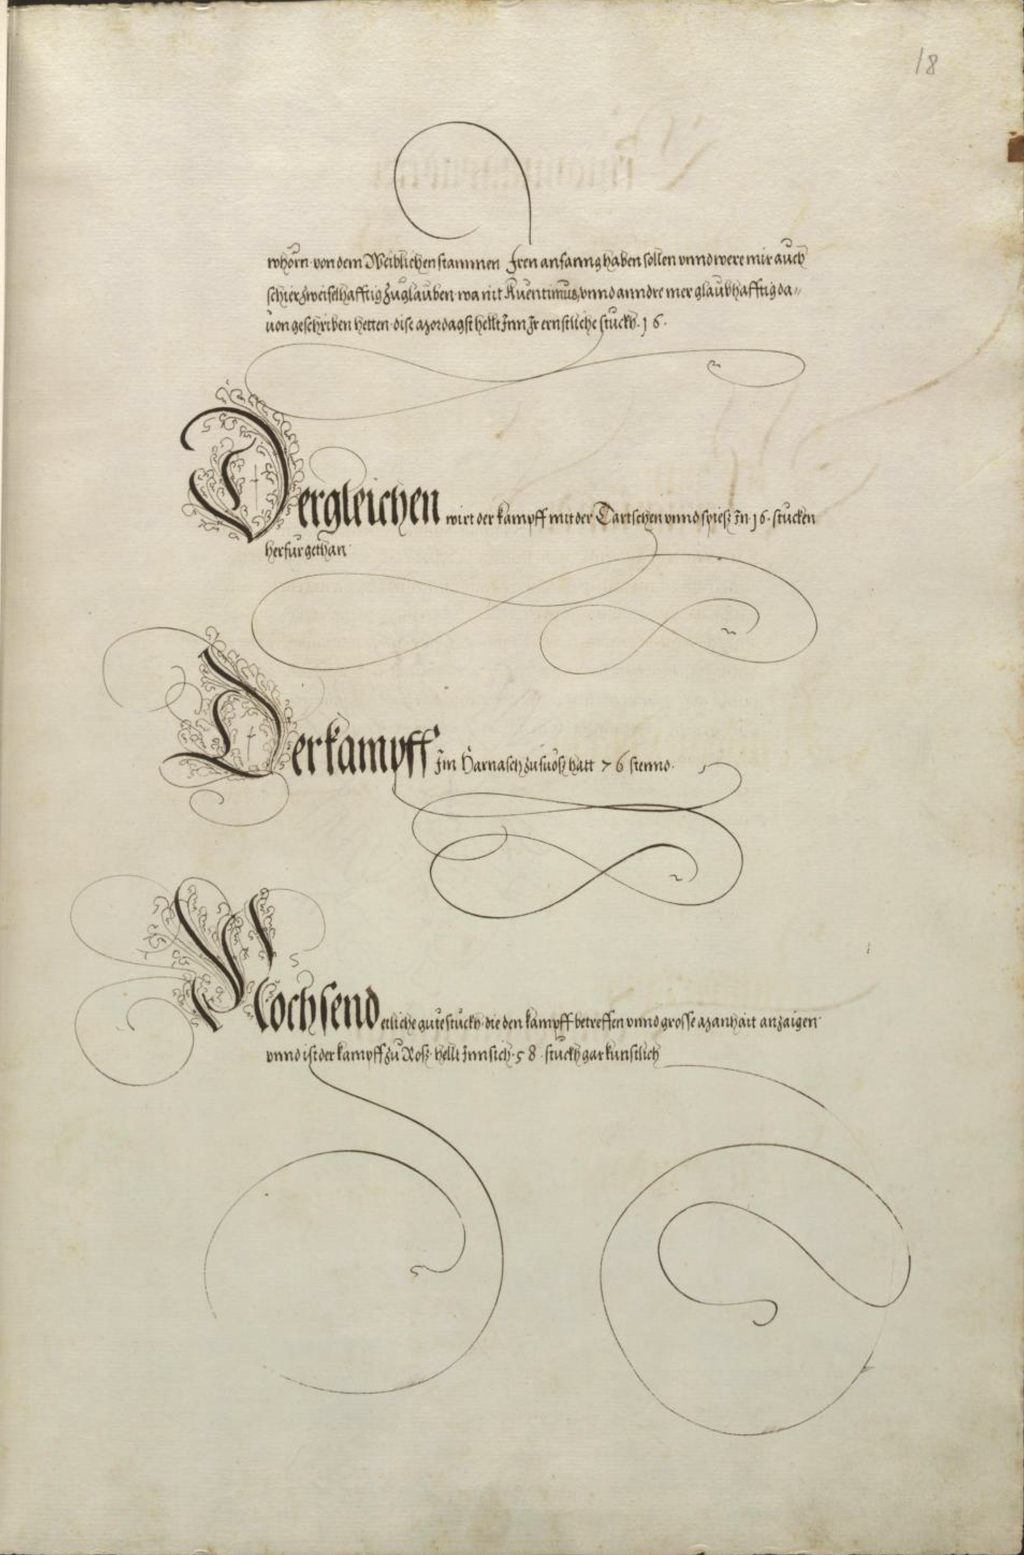 18
whorn von dem Weiblichen stammen Iren anfanng haben sollen vnnd were mir auch
schier zweifelhafftig zuglauben wa nit Auentinus, vnnd anndre mer glaubhafftig da„
uon geschriben hetten dise Mordagst hellt Inn Ir ernstliche stuckh. 16.
Dergleichen wirt der kampff mit der Tartschen vnnd spieß In. 16. stucken
herfur gethan
Der kampff Im Harnasch zu fuoß hatt 76 stennd.
Noch send etliche gute stuckh die den kampff betreffen vnnd grosse Manhait anzaigen
vnnd ist der kampff zu Roß hellt Inn sich. 58. stuckh gar kunstlich